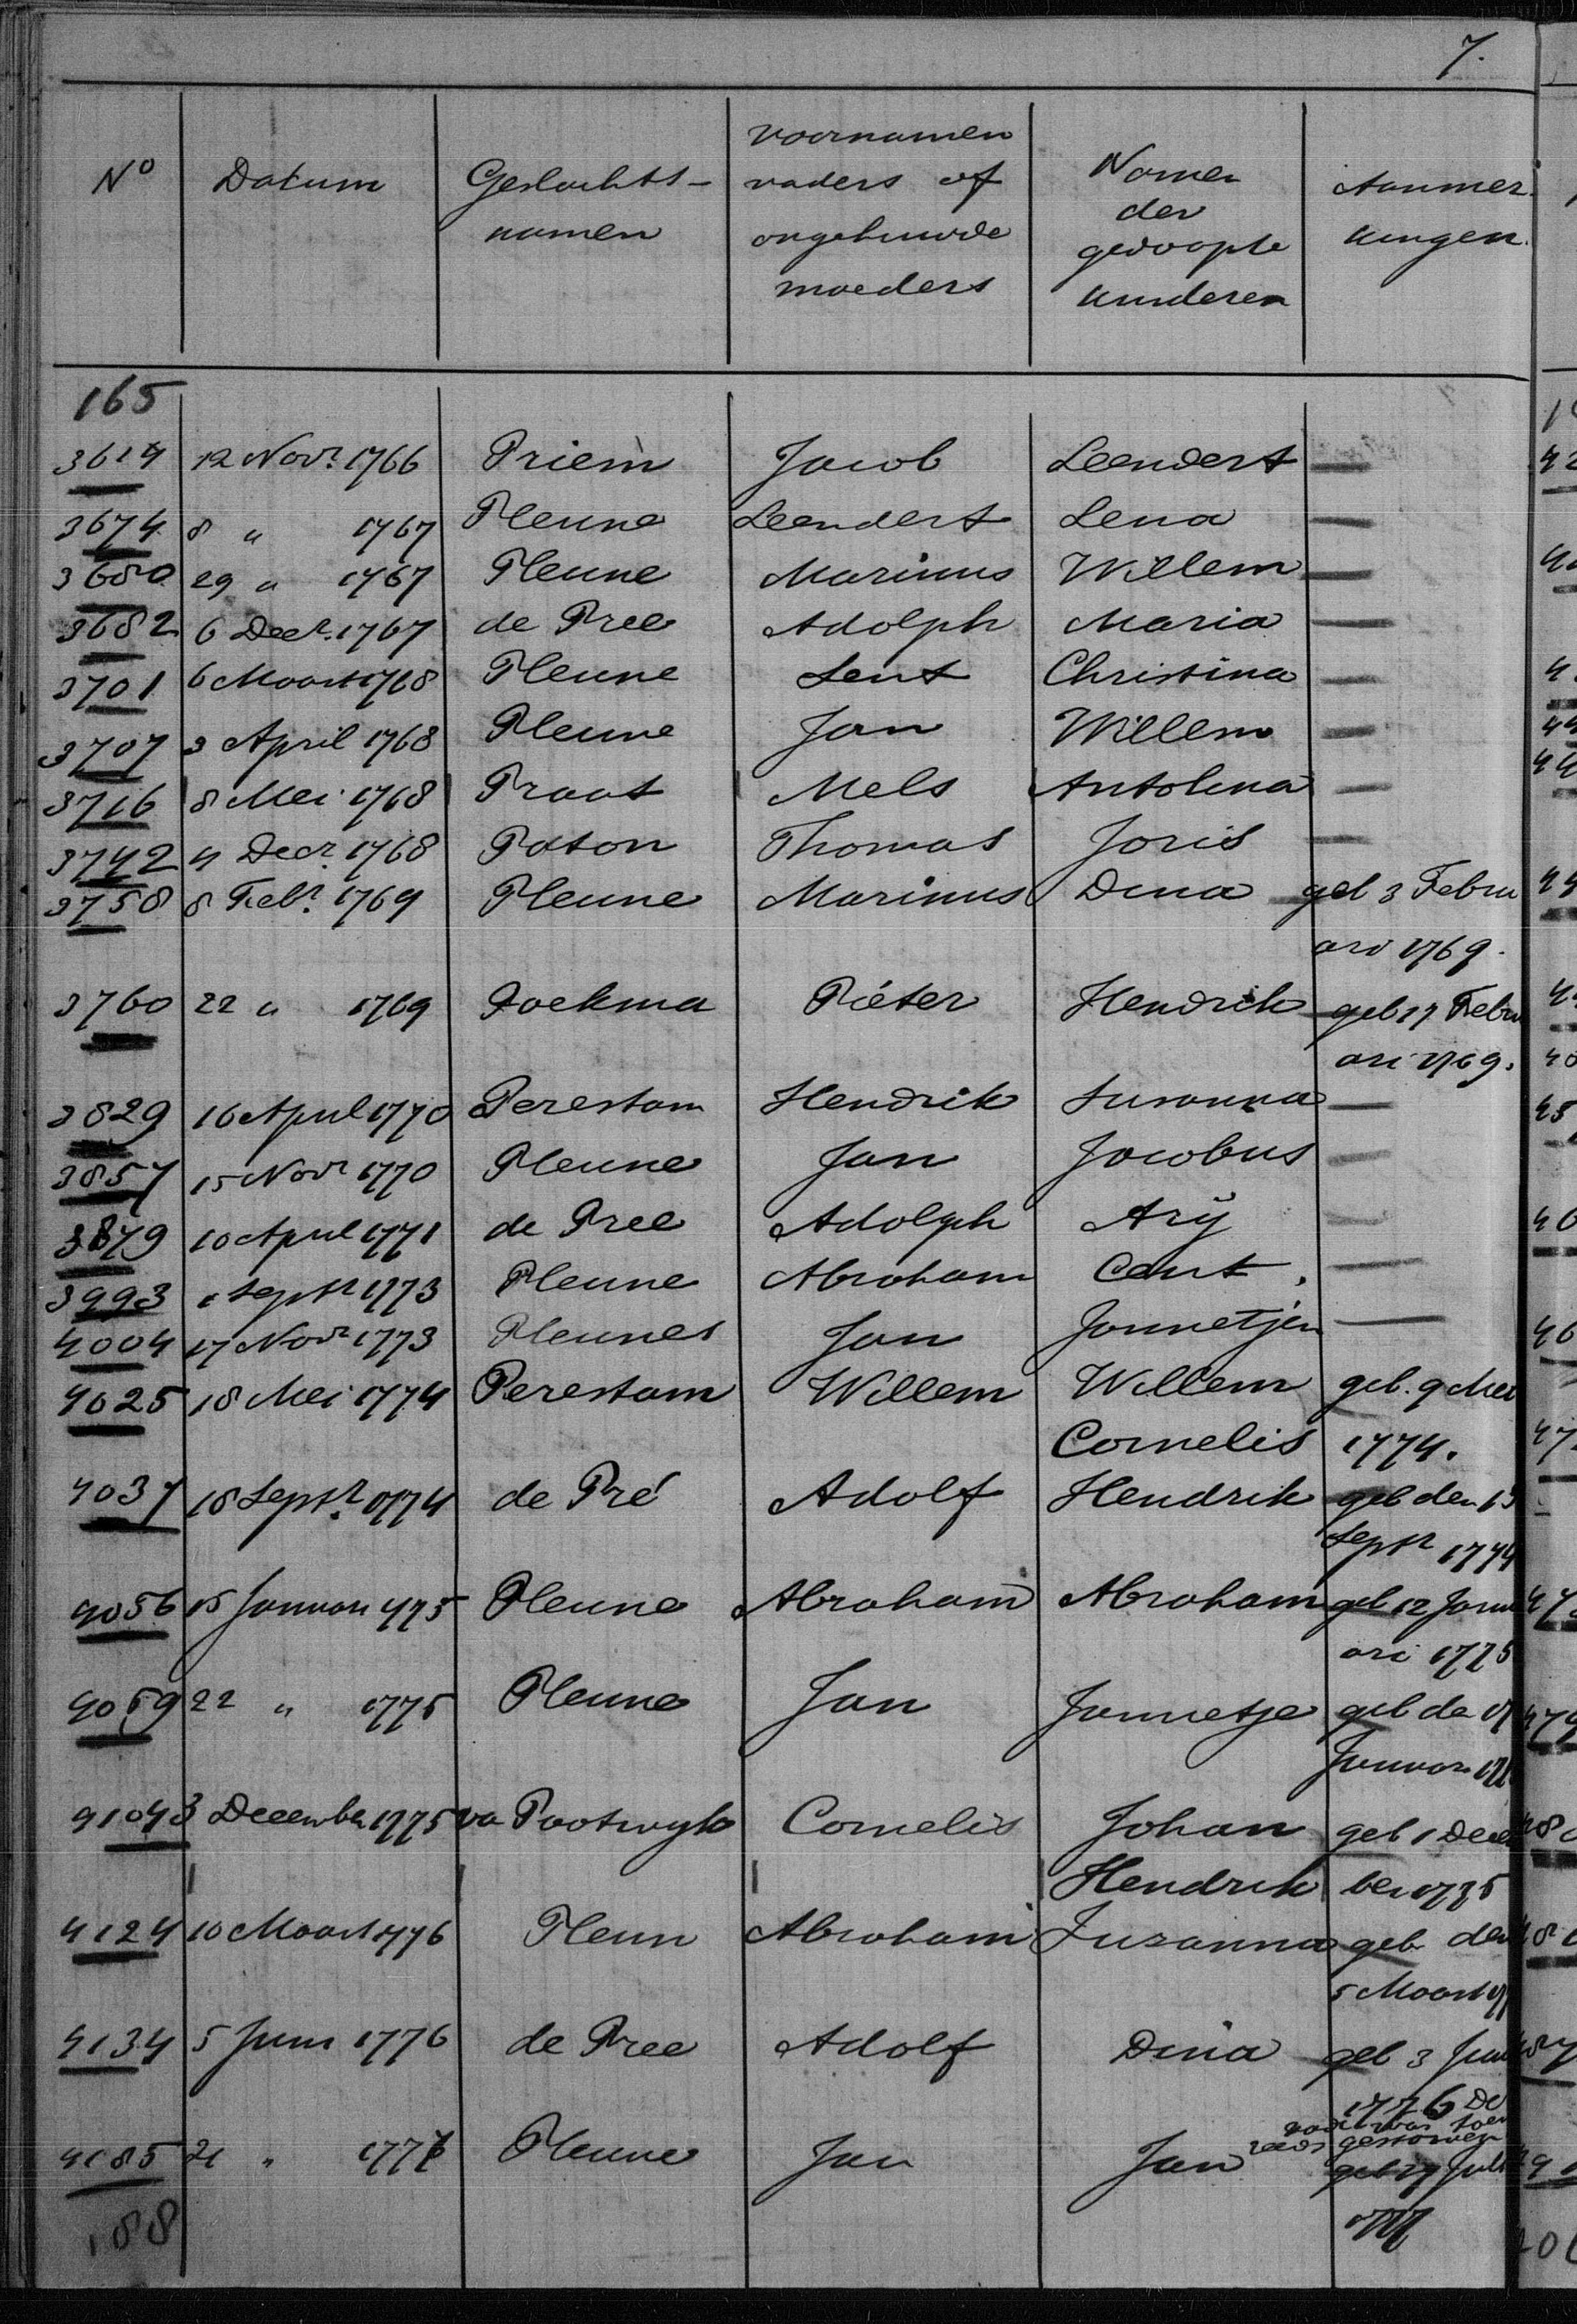 7.
No Datum Geslachts- namen voornamen vaders of ongehuwde moeders Namen der gedoopte kinderen Aanmer- kingen.
165
3614 12 Novr. 1766 Priem Jacob Leendert —
3674 8 " 1767 Pleune Leendert Lena —
3680 29 " 1767 Pleune Marinus Willem —
3682 6 Decr. 1767 de Pree Adolph Maria —
3701 6 Maart 1768 Pleune Lent Christina —
3707 3 April 1768 Pleune Jan Willem —
3716 8 Mei 1768 Praat Mels Antolina —
3742 4 Decr 1768 Poton Thomas Joris —
3758 8 Febr. 1769 Pleune Marinus Dina geb 3 Febru
ari 1769.
3760 22 " 1769 Poekma Pieter Hendrik geb 17 Febru
ari 1769.
3829 16 April 1770 Perestam Hendrik Susanna —
3857 15 Novr 1770 Pleune Jan Jacobus —
3879 10 April 1771 de Pree Adolph Arij —
3993 1 Septr 1773 Pleune Abraham Cent. —
4004 17 Novr 1773 Pleunes Jan Jannetjen —
4025 18 Mei 1774 Perestam Willem Willem geb. 9 Mei
Cornelis 1774.
4037 18 Septr. 1774 de Pré Adolf Hendrik geb den 13
Septr 1774
4056 15 Januari 1775 Pleune Abraham Abraham geb 12 Janu
ari 1775
4059 22 " 1775 Pleune Jan Jannetje geb de 17
Januari
4104 3 December 1775 va Pootwyk Cornelis Johan geb 1 Decem
Hendrik ber 1775
4124 10 Maart 1776 Pleun Abraham Suzanna geb den
5 Maart
4134 5 Juni 1776 de Pree Adolf Dina geb 3 Juni
1776 De
vader was toen
reeds gestorven
4185 21 " 1777 Pleune Jan Jan geb 17 Juli
188